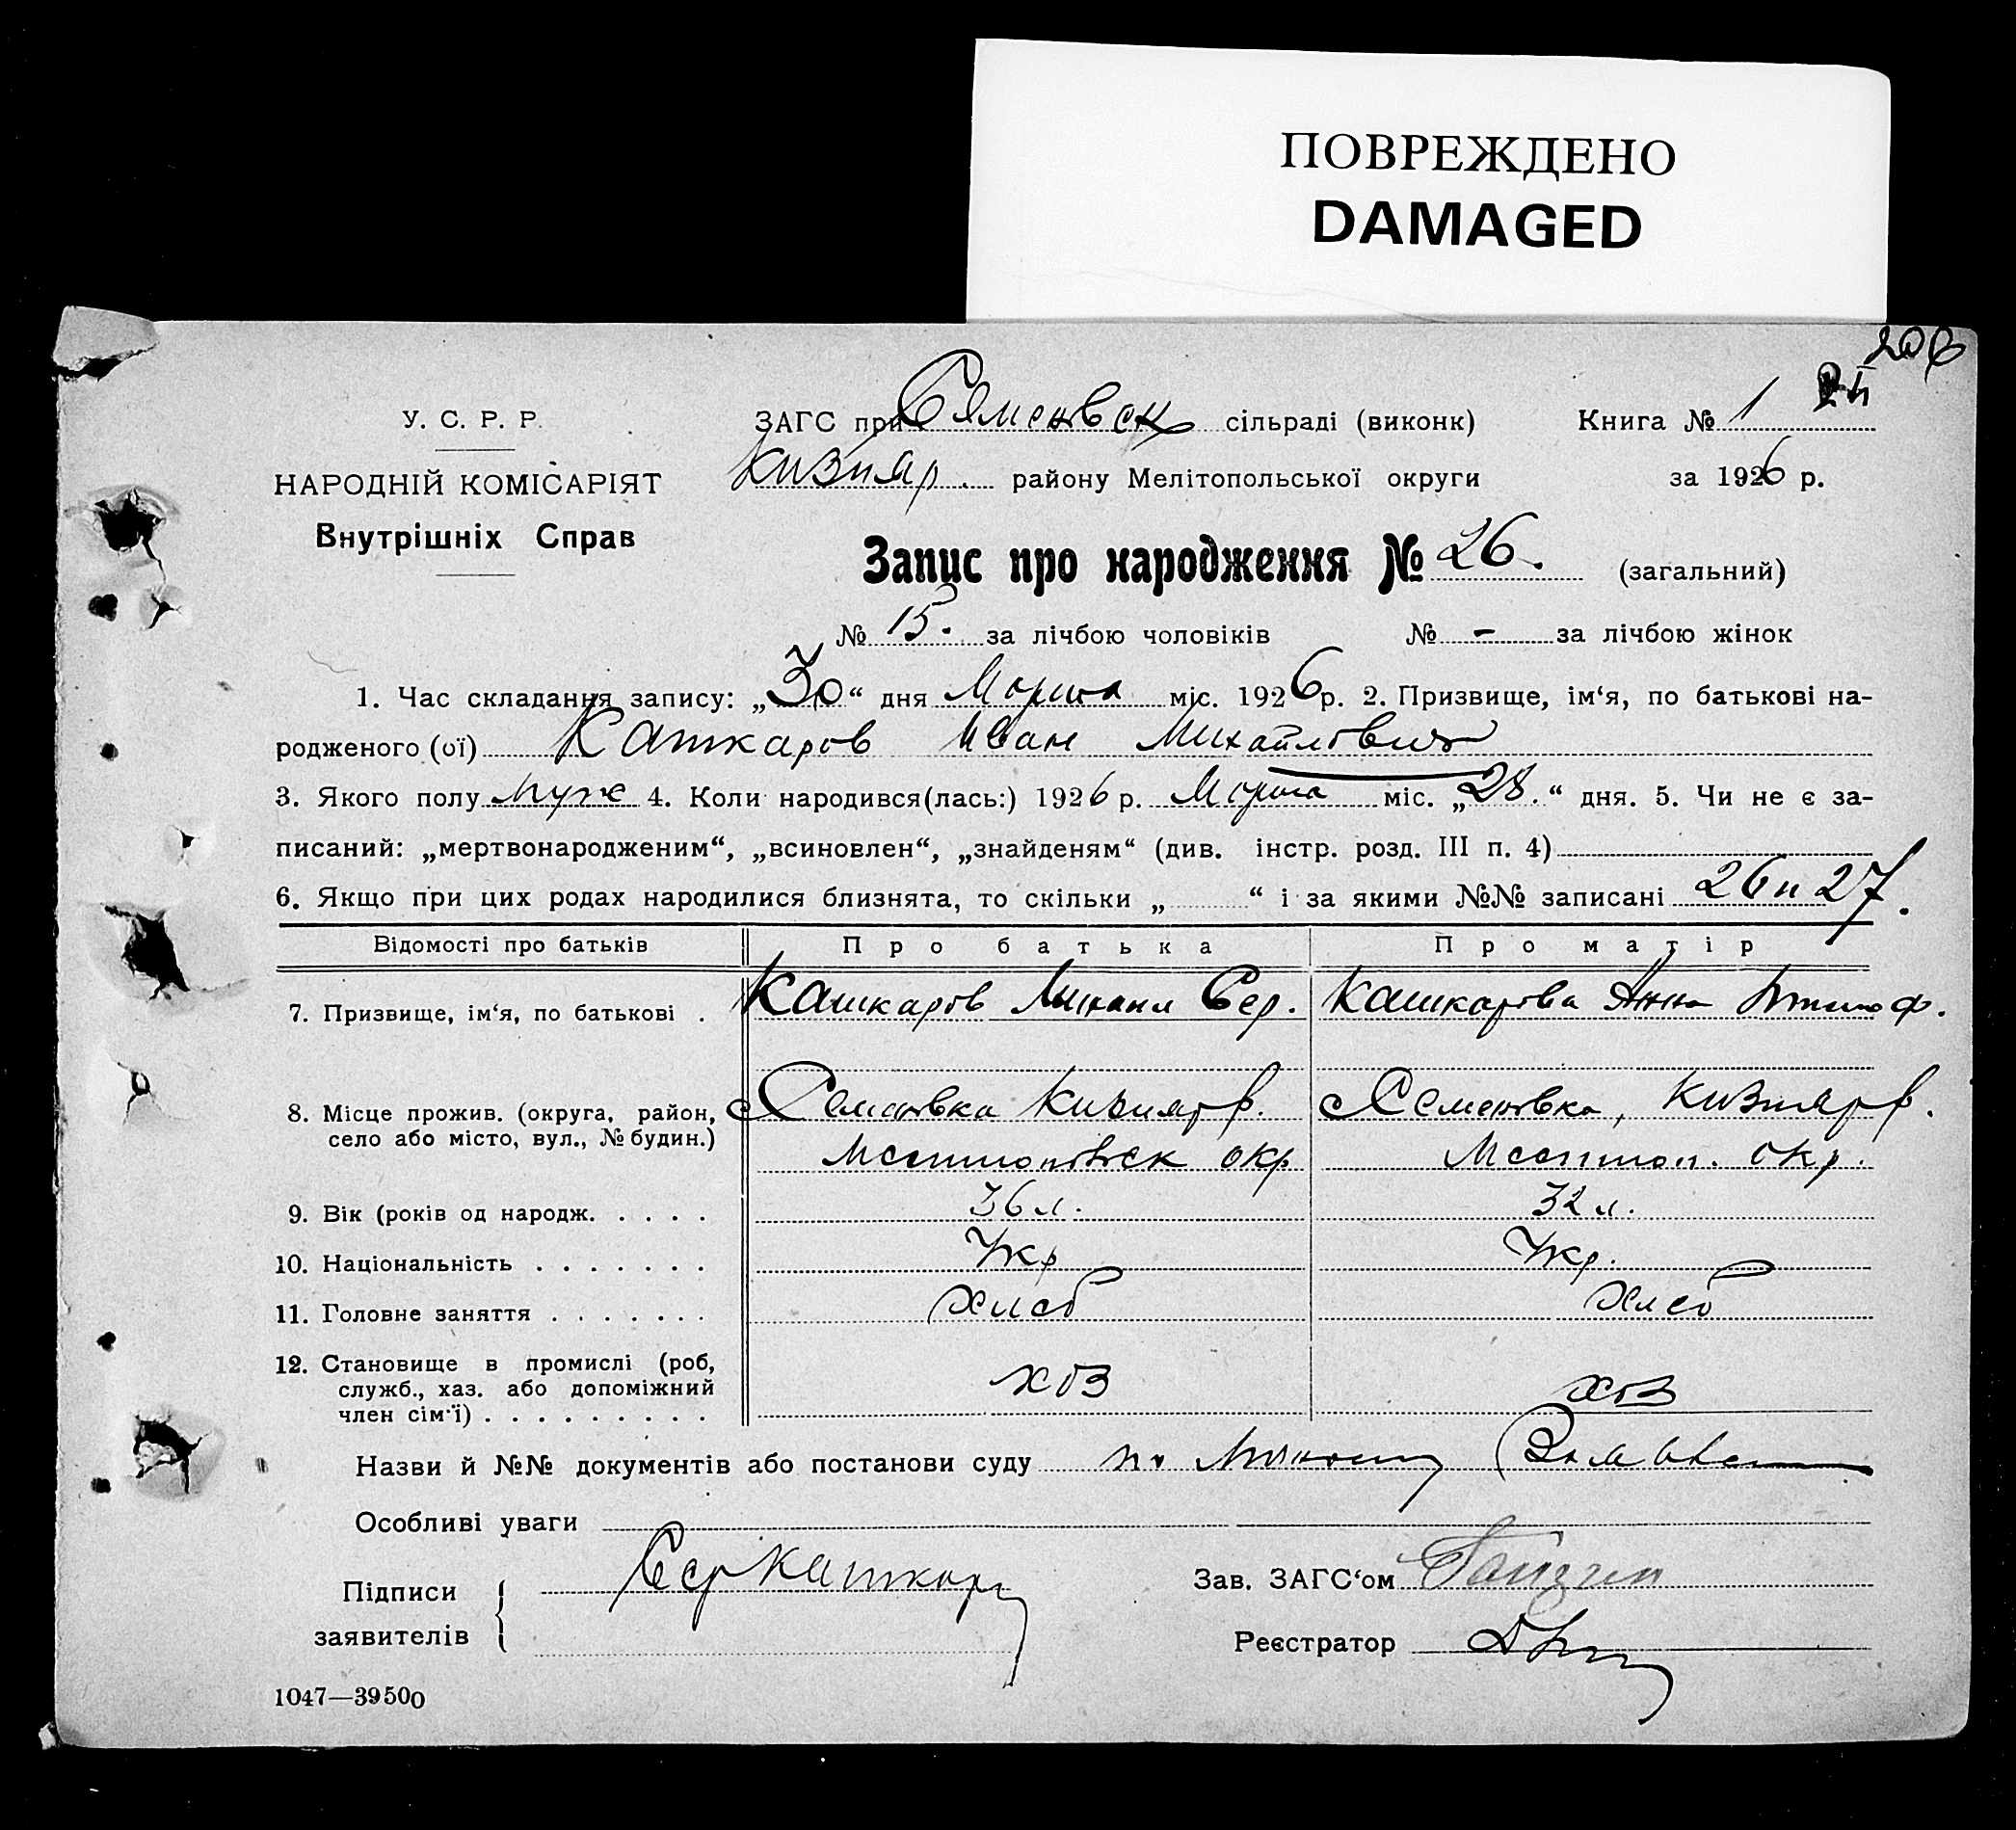 ПОВРЕЖДЕНО
DAMAGED
У. С. Р. Р.
НАРОДНІЙ КОМІСАРІЯТ
Внутрішніх Справ
ЗАГС при Семеновск сільраді (виконк) Книга № 1
Кизияр. району Мелітопольської округи за 1926 р.
Запис про народження № 26. (загальний)
№ 15. за лічбою чоловіків № - за лічбою жінок
1. Час складання запису: „30“ дня Марта міс. 1926 р. 2. Призвище, ім‘я, по батькові на-
родженого (ої) Кашкаров Иван Михайлович
3. Якого полу муж 4. Коли народився(лась:) 1926 р. Марта міс. „28.“ дня. 5. Чи не є за-
писаний: „мертвонародженим“, „всиновлен“, „знайденям“ (див. інстр. розд. III п. 4)
6. Якщо при цих родах народилися близнята, то скільки „ “ і за якими №№ записані 26 и 27.
Відомості про батьків Про батька Про матір
7. Призвище, ім‘я, по батькові . Кашкаров Михаил Сер. Кашкарова Анна
8. Місце прожив. (округа, район, Семеновка Кизияр р. Семеновка, Кизияр р.
село або місто, вул., № будин.) Мелитопольск окр Мелитоп. окр.
9. Вік (років од народж. . . . . 36 л. 32 л.
10. Національність . . . . . . . Укр Укр.
11. Головне заняття . . . . . . . хлеб хлеб
12. Становище в промислі (роб, хоз хоз
служб., хаз. або допоміжний
член сім‘ї) . . . . . . . . .
Назви й №№ документів або постанови суду по
Особливі уваги
Підписи Сер Кашкар Зав. ЗАГС‘ом
заявителів Реєстратор
1047—39500